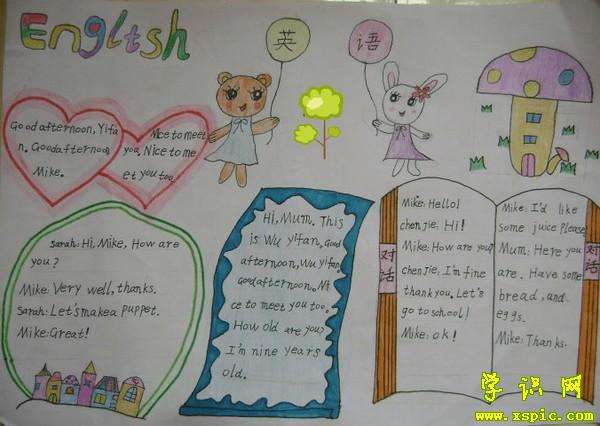 English
英
语
Good afternoon, Yifa
n. Good afternoon,
Mike.
Nice to meet
you. Nice to me
et you too.
Sarah: Hi, Mike, How are
you?
Mike: Very well, thanks.
Sarah: Let's make a puppet.
Mike: Great!
Hi, Mum. This
is Wu Yifan. Good
afternoon, Wu Yifan.
Good afternoon. Ni
ce to meet you too.
How old are you?
I'm nine years
old.
对话
Mike: Hello!
chen jie: Hi!
Mike: How are you?
chen jie: I'm fine
thank you. Let's
go to school!
Mike: ok!
Mike: I'd like
some juice Please.
Mum: Here you
are. Have some
bread, and
eggs.
Mike: Thanks.
对话
学识网
www.xspic.com